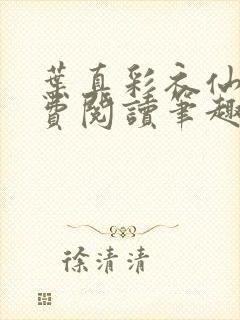 葉真彩衣仙
費閱讀筆趣
徐清清